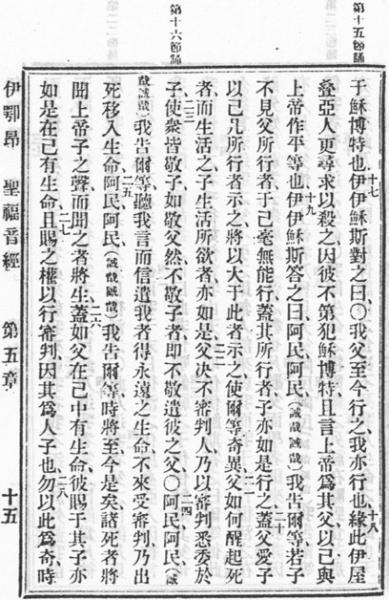 第十五節讀
第十六節讀
于穌博特也伊伊穌斯對之曰〇我父至今行之我亦行也緣此伊屋
疊亞人更尋求以殺之因彼不第犯穌博特且言上帝爲其父以己與
上帝作平等也伊伊穌斯答之曰阿民阿民(誠哉誠哉)我告爾等若子
不見父所行者于己毫無能行蓋其所行者子亦如是行之蓋父愛子
以己凡所行者示之將以大于此者示之使爾等奇異父如何醒起死
者而生活之子生活所欲者亦如是父决不審判人乃以審判悉委於
子使衆皆敬子如敬父然不敬子者即不敬遣彼之父〇阿民阿民(誠
哉誠哉)我告爾等聽我言而信遣我者得永遠之生命不來受審判乃出
死移入生命阿民阿民(誠哉誠哉)我告爾等時將至今是矣諸死者將
聞上帝子之聲而聞之者將生蓋如父在己中有生命彼賜于其子亦
如是在己有生命且賜之權以行審判因其爲人子也勿以此爲奇時
十七
十八
十九
二十
二一
二二
二三
二四
二五
二六
二七
二八
伊鄂昂 聖福音經 第五章 十五